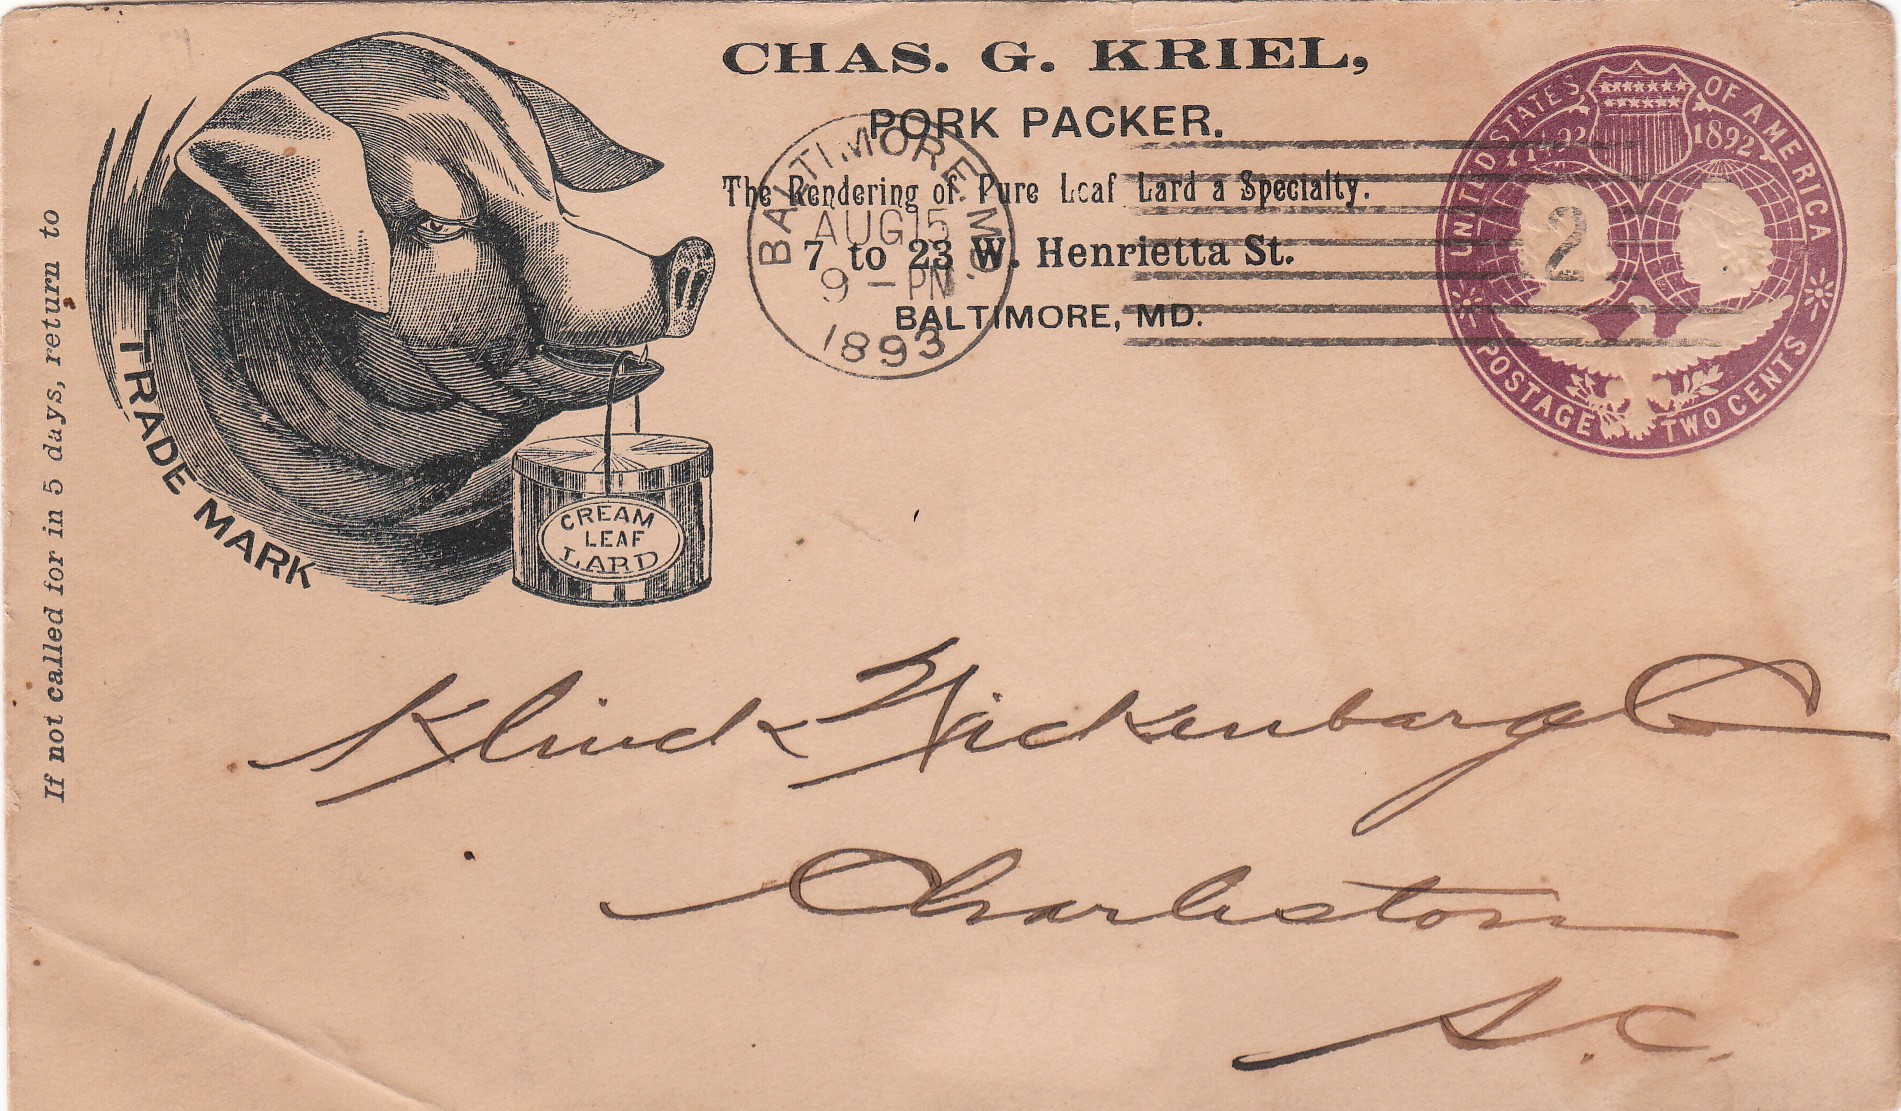 CHAS. G. KRIEL,
PORK PACKER.
The Rendering of Pure Leaf Lard a Specialty.
7 to 23 W. Henrietta St.
BALTIMORE, MD.
BALTIMORE, MD.
AUG 15
9 - PM
1893
2
UNITED STATES OF AMERICA
1492 1892
POSTAGE TWO CENTS
TRADE MARK
CREAM
LEAF
LARD
If not called for in 5 days, return to
Klinck Wickenberg Co
Charleston
S.C.